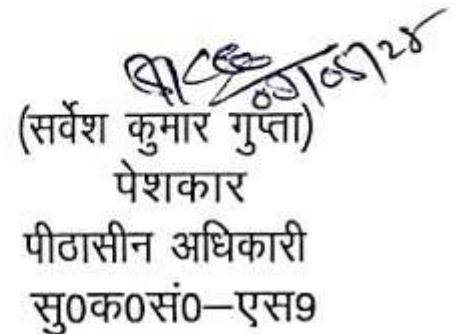 (सर्वेश कुमार गुप्ता)
पेशकार
पीठासीन अधिकारी
सु0क0सं0–एस9